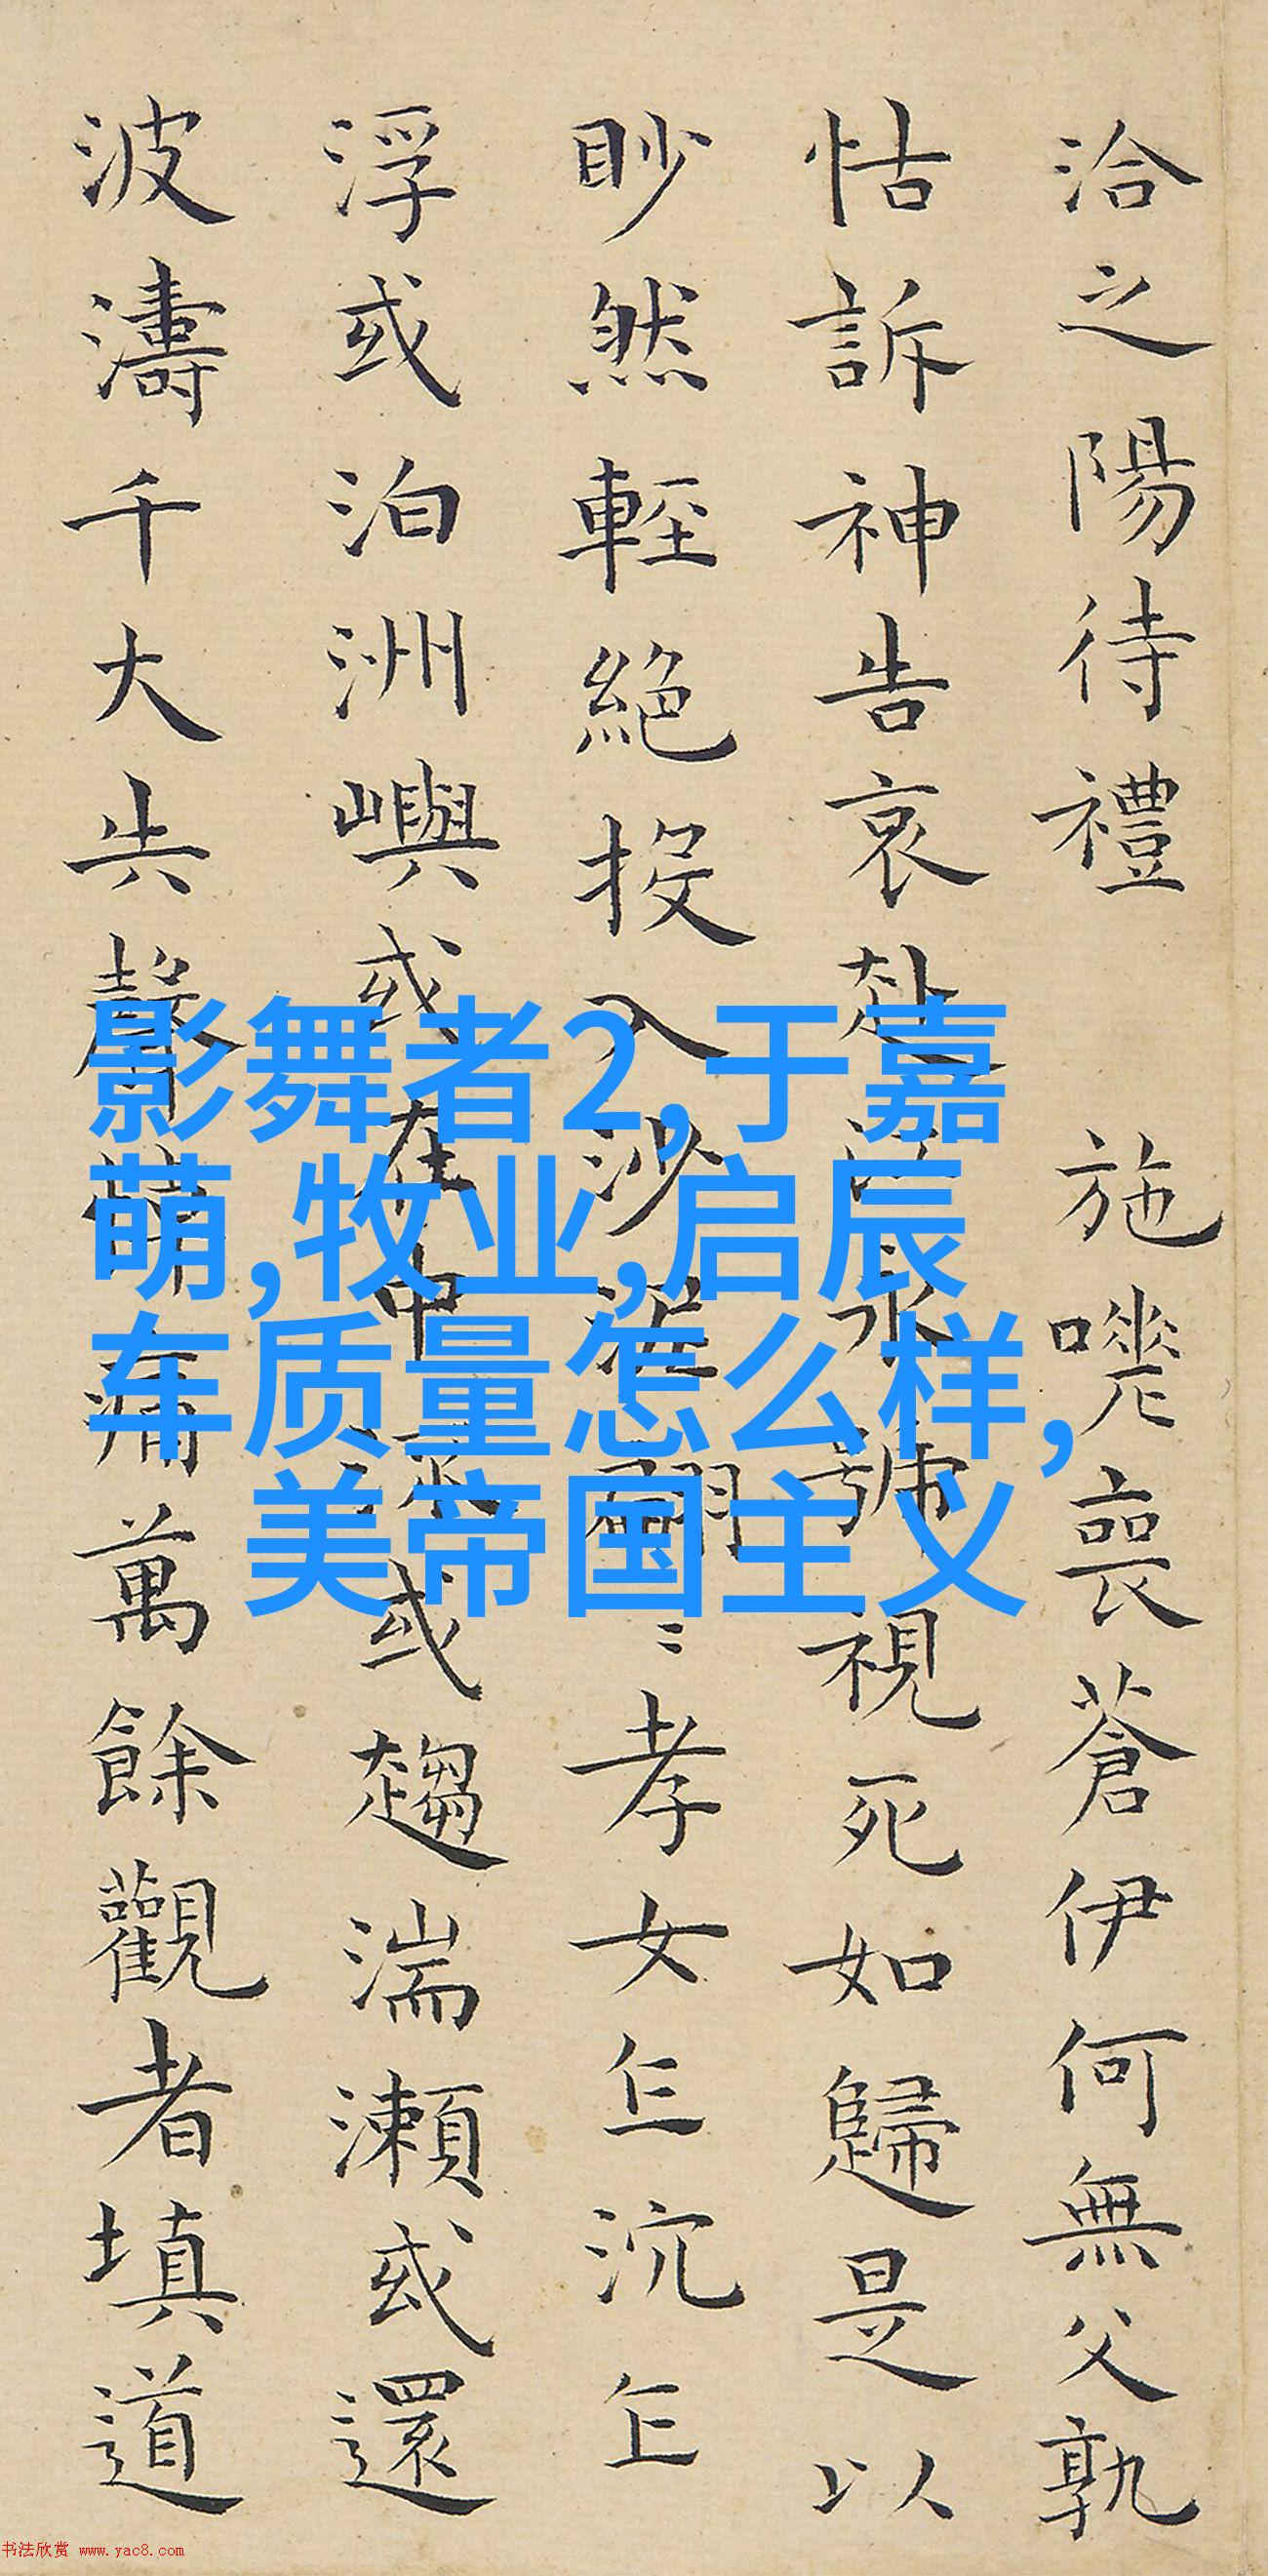 洽之陽待禮 施嗟喪蒼伊何無父孰
怙訴神告哀赴江永號視死如歸是以
眇然輕絕投入沙泥翩〻孝女乍沉乍
浮或泊洲嶼或在中流或趨湍瀨或還
波濤千大失聲悼痛萬餘觀者填道
影舞者2,于嘉
萌,牧业,启辰
车质量怎么样,
美帝国主义
书法欣赏 www.yac8.com